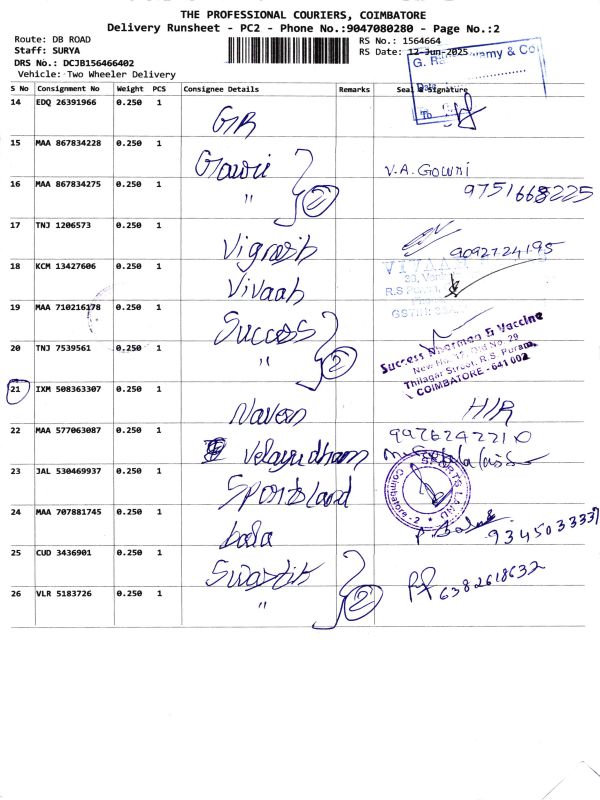 THE PROFESSIONAL COURIERS, COIMBATORE
Delivery Runsheet - PC2 - Phone No.:9047080280 - Page No.:2
Route: DB ROAD
RS No.: 1564664
Staff: SURYA
RS Date: 12-Jun-2025
DRS No.: DCJB156466402
Vehicle: Two Wheeler Delivery
G. & Co
Date
To
S No Consignment No Weight PCS Consignee Details Remarks Seal & Signature
14 EDQ 26391966 0.250 1 GR
15 MAA 867834228 0.250 1 Gowri V.A. Gowri
16 MAA 867834275 0.250 1 " 2 9751668225
17 TNJ 1206573 0.250 1 Vignesh 9092724195
18 KCM 13427606 0.250 1 Vivaah VIVAAH
R.S
GSTIN:
19 MAA 710216178 0.250 1 Success
20 TNJ 7539561 0.250 1 " 2
Success & Vaccine
New No. 12, Old No. 29
Thilagar Street, R.S. Puram,
COIMBATORE - 641 002
21 IXM 508363307 0.250 1 Naven H/R
22 MAA 577063087 0.250 1 Velayudham 9976242210
23 JAL 530469937 0.250 1 Sportsland SPORTS LAND
Coimbatore - 2
24 MAA 707881745 0.250 1 bala P. Bala 9345033337
25 CUD 3436901 0.250 1 Swastik 6382618632
26 VLR 5183726 0.250 1 " 2